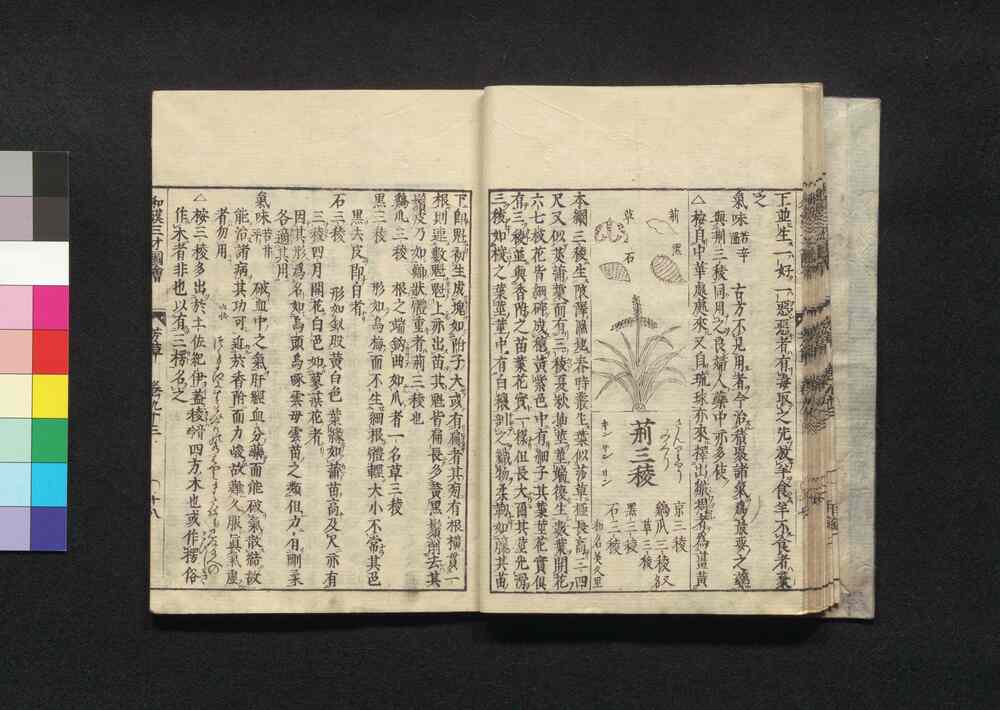 下並生一好一惡惡者有毒取之先放羊食羊不食者棄
之
氣味苦辛溫 古方不見用者今治積聚諸氣爲最要之藥
與荆三稜同用之良婦人藥中亦多使
△按自中華處處來又自琉球亦來擇出
荆
黒
草
石
荆三稜
さんりょう
キン サン リン
京三稜
雞爪三稜
草三稜
黒三稜
石三稜
和名美久里
本綱三稜生荒廢陂池濕地春時叢生葉似莎草極長高三四
尺又似茭蒲葉而有三稜夏秋抽莖莖端復生數葉開花
六七枝花皆細碎成穗黃紫色中有細子其葉莖花實俱
有三稜並與香附之苗葉花實一樣但長大爾其莖光滑
三稜如椶之葉莖莖中有白穰剖之織物柔韌如藤其苗
下卽魁初生成塊如附子大或有扁者其旁有根橫貫一
根則連數魁魁上亦出苗其魁皆扁長多黃黒鬚削去其
鬚皮乃如鯽狀體重者荆三稜也
雞爪三稜 根之端鈎曲如爪者一名草三稜
黒三稜 形如烏梅而不生細根體輕大小不常其色
黒去皮卽白者
石三稜 形如釵股黃白色葉緣如蒲苗高及尺亦有
三稜四月開花白色如蓼葒花者
因其形爲名如烏頭烏啄雲母雲苗之類但力有剛柔
各適其用
氣味苦平 破血中之氣肝經血分藥而能破氣散結故
能治諸病其功可近於香附而力峻故難久服眞氣虛
者勿用
△按三稜多出於土佐紀伊蓋稜四方木也或作楞俗
作木者非也以有三楞名之
和漢三才圖會
芳草
卷九十三
十八